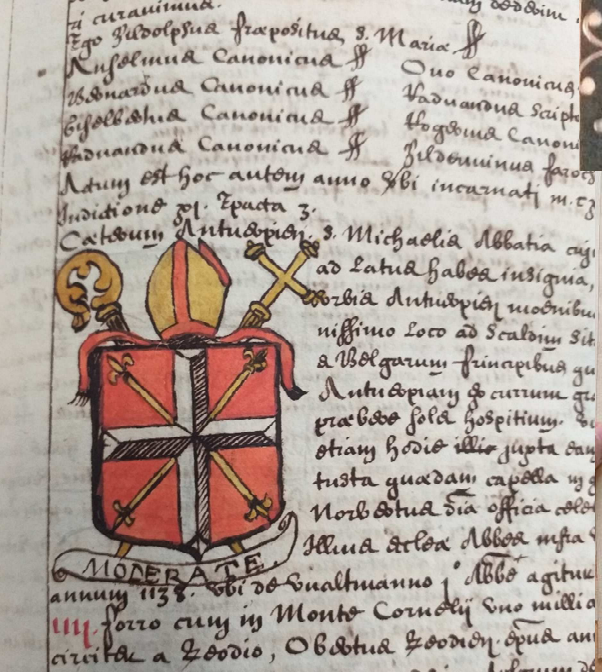 ri curavimus.
Ego Hildolphus Præpositus S. Mariæ ff
Anselmus Canonicus ff Ovo Canonicus
Bernardus Canonicus ff Raduardus Script
Giselbertus Canonicus ff Rogerius Canoni
Raduardus Canonicus ff Hilduinus Paroch
Actum est hoc autem anno Vbi incarnati m. c
Indictione XI. Epacta 3.
Cæterum Antuerpien. S. Michaelis Abbatia cuj
ad Latus habes insignia,
orbis Antuerpien moenibu
nissimo Loco ad Scaldim sit
a Belgarum Principibus qu
Antuerpiam currum
præbere solet hospitium.
etiam hodie illic juxta eam
tusta quædam capella in
Norbertus dia officia cele
Illius eclea Abbas infra
MODERATE
annum 1138. vbi de Vualtmanno j° Abbe agitur
IIII. Porro cum in Monte Cornelij vno millia
circiter a Leodio, Obertus Leodien. epus an